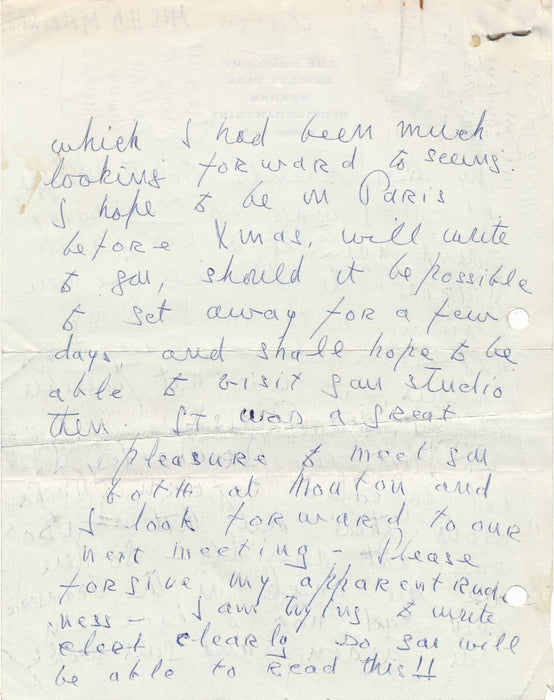 which I had been much
looking forward to seeing.
I hope to be in Paris
before Xmas, will write
to you, should it be possible
to get away for a few
days and shall hope to be
able to visit your studio
then. It was a great
pleasure to meet you
both at Mouton and
I look forward to our
next meeting - Please
forgive my apparent Rude
ness - I am trying to write
clearly so you will
be able to read this!!